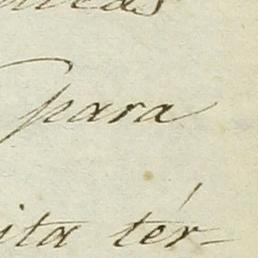 para
ita tér-